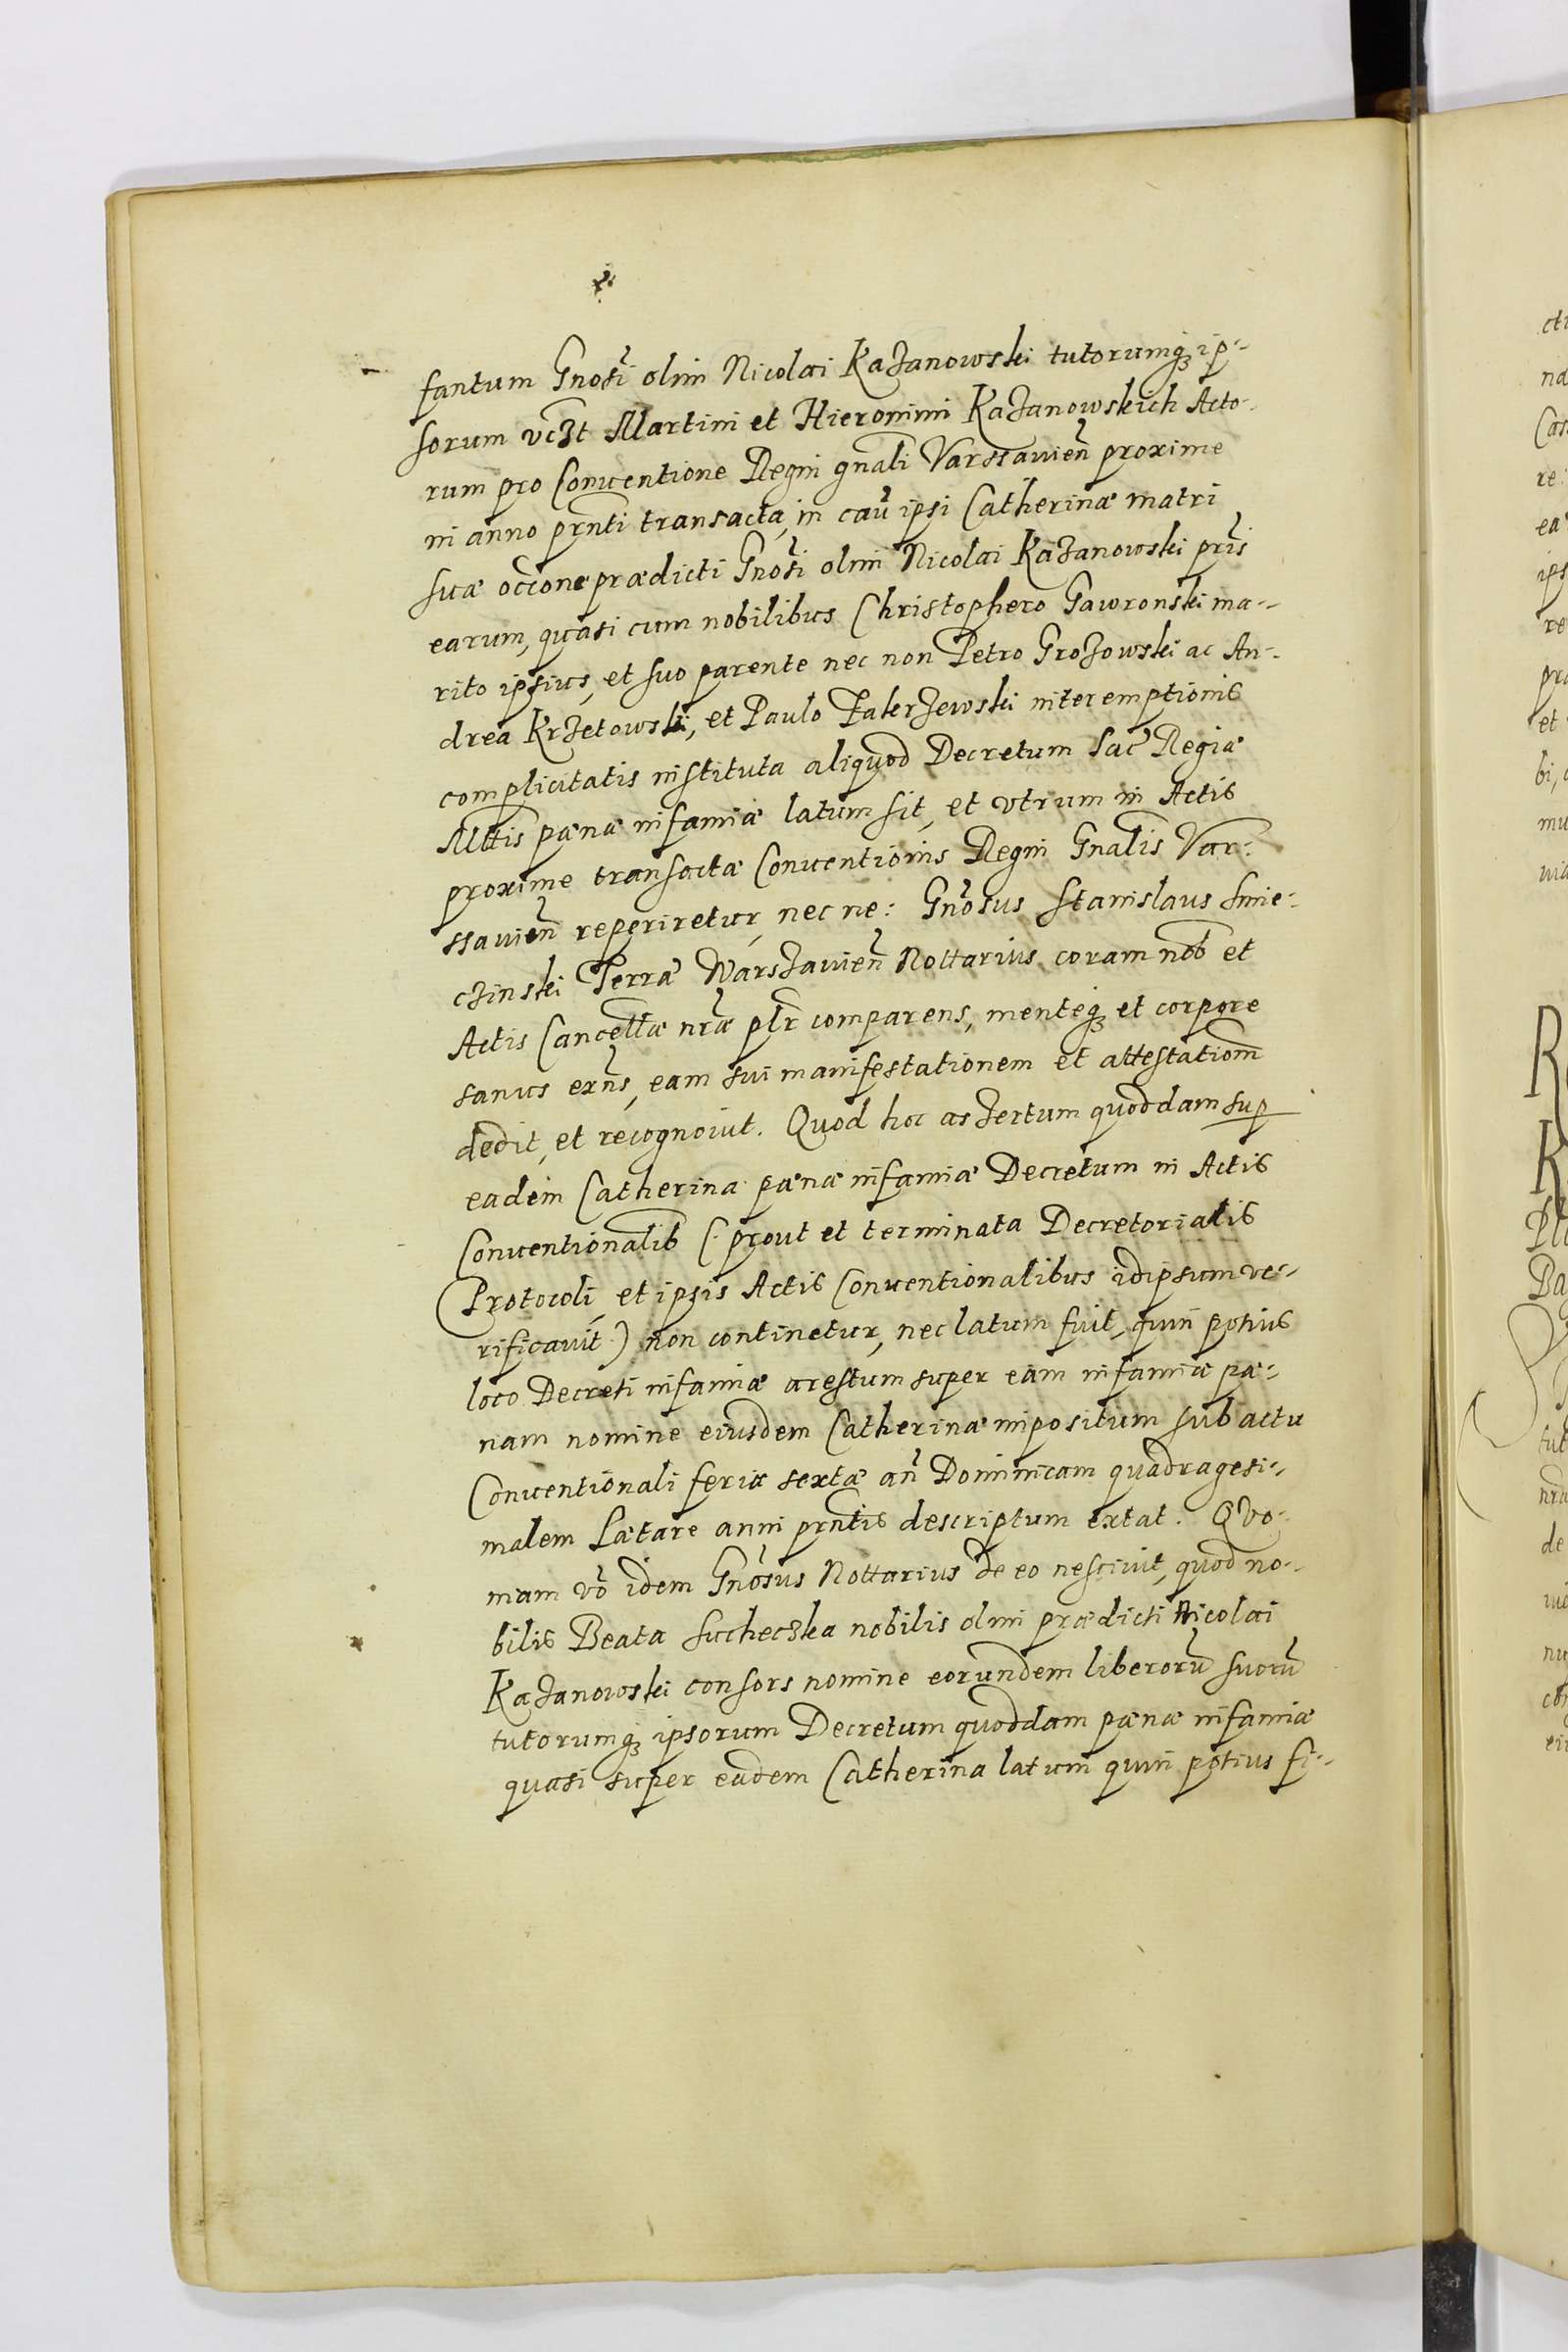 fantum Gnosi olim Nicolai Kazanowski tutorumq3 ip-
sorum vczt Martini et Hieronimi Kazanowskich Acto-
rum pro Conventione Regni gnali Varssavien proxime
in anno prnti transacta, in cau ipsi Catherinæ matri
suæ occione prædicti Gnosi olim Nicolai Kazanowski pris
earum, quasi cum nobilibus Christophero Gawronski ma-
rito ipsius, et suo parente nec non Petro Grozowski ac An-
drea Krzetowski, et Paulo interemptionis
complicitatis instituta aliquod Decretum Sac Regiæ
Mttis pænæ infamiæ latum sit, et vtrum in Actis
proxime transactæ Conventionis Regni Gnalis Var-
ssavien reperiretur, nec ne: Gnosus Stanislaus Smie-
czinski Terræ Warszavien Nottarius coram nob et
Actis Cancellæ nræ plr comparens, menteq3 et corpore
sanus exns, eam sui manifestationem et attestatiom
dedit, et recognovit. Quod hoc assertum quoddam sup
eadem Catherina pænæ infamiæ Decretum in Actis
Conventionalib (prout et terminata Decretorialis
Protocoli, et ipsis Actis Conventionalibus idipsum ve-
rificavit) non continetur, nec latum fuit, quin potius
loco Decreti infamiæ arestum super eam infamiæ pæ-
nam nomine eiusdem Catherinæ impositum sub actu
Conventionali feria sexta an Dominicam quadragesi-
malem Lætare anni prntis descriptum extat. Quo-
niam vo idem Gnosus Nottarius de eo nescivit, quod no-
bilis Beata Sucheczka nobilis olim prædicti Nicolai
Kazanowski consors nomine eorundem liberoru suoru
tutorumq3 ipsorum Decretum quoddam pænæ infamiæ
quasi super eadem Catherina latum quin potius fi-